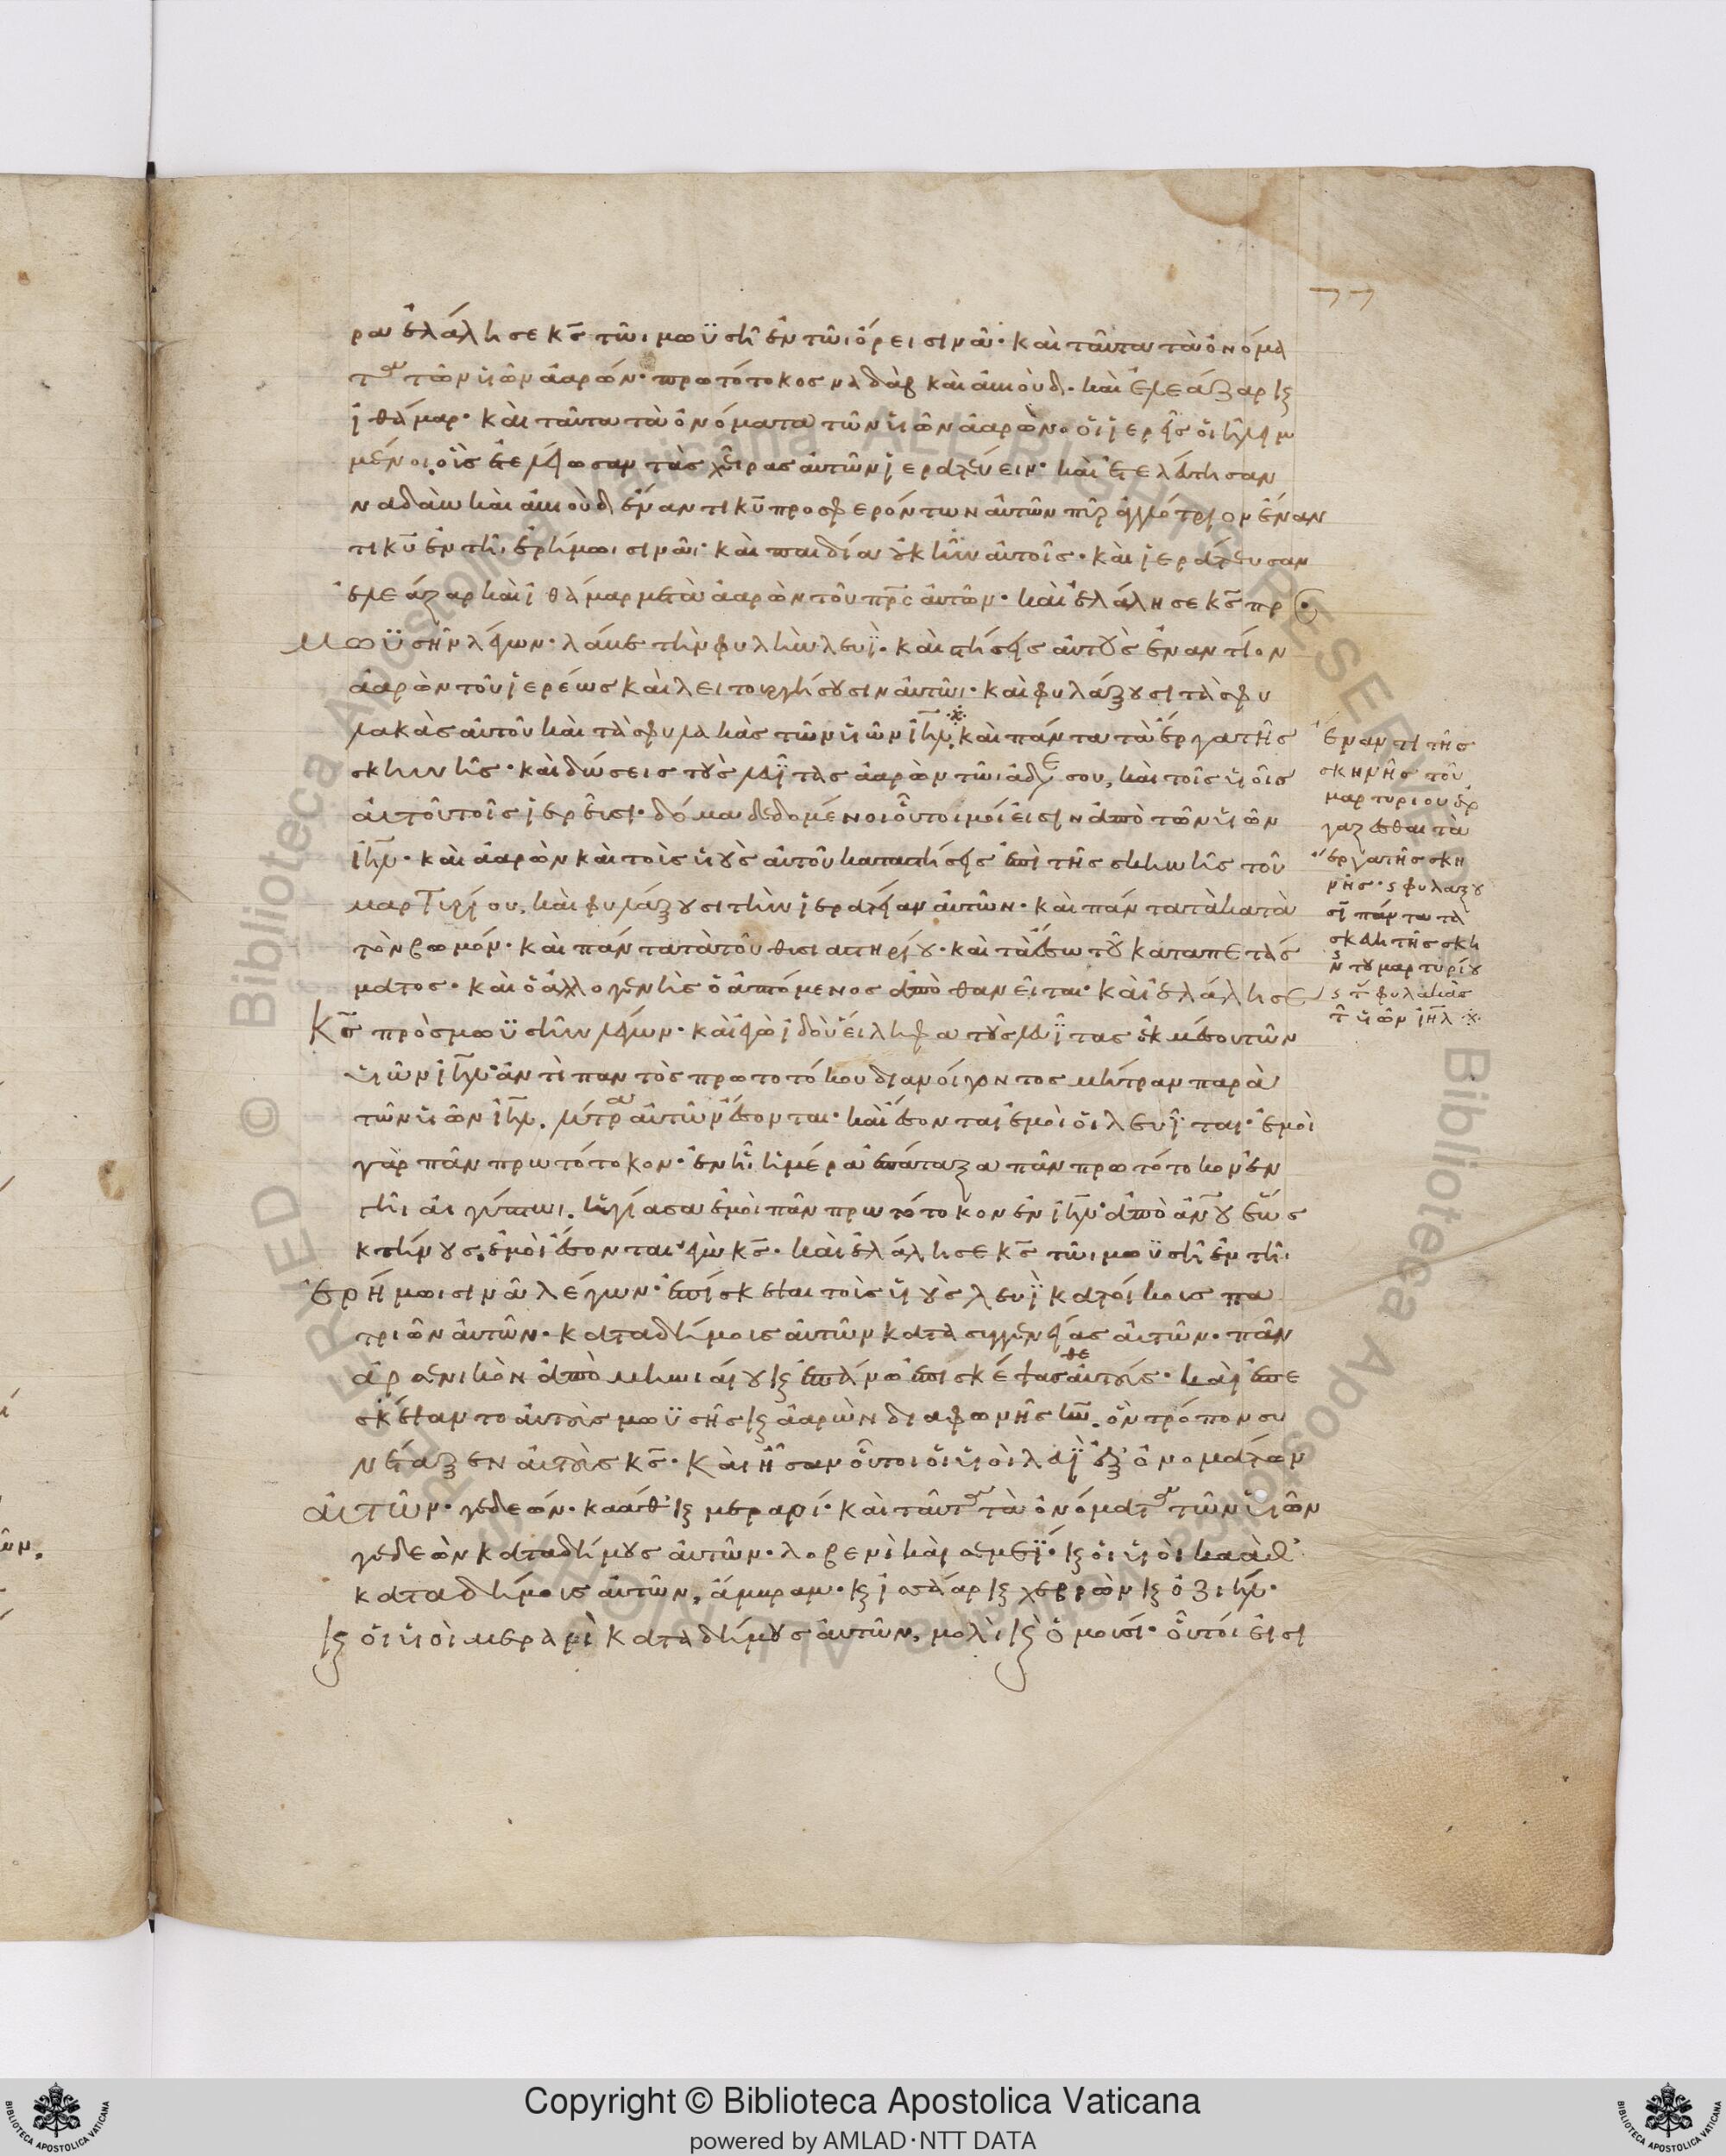 77
ρα ἐλάλησε κς τῶι μωϋσῆ ἐν τῶι ὄρει σινᾶ· καὶ ταῦτα τὰ ὀνόμα
τα τῶν υἱῶν ἀαρών· πρωτότοκος ναδὰβ καὶ ἀβιούδ· καὶ ἐλεάζαρ κ
ἰθάμαρ· καὶ ταῦτα τὰ ὀνόματα τῶν υἱῶν ἀαρὼν· οἱ ἱερεῖς οἱ ἠλειμ
μένοι, οἷς ἐτελείωσαν τὰς χεῖρας αὐτῶν ἱερατεύειν· καὶ ἐτελεύτησαν
ναδὰβ καὶ ἀβιοὺδ ἔναντι κυ προσφερόντων αὐτῶν πῦρ ἀλλότριον ἔναν
τι κυ ἐν τῆι ἐρήμωι σινᾶι· καὶ παιδία οὐκ ἦν αὐτοῖς· καὶ ἱεράτευσαν
ἐλεάζαρ καὶ ἰθάμαρ μετὰ ἀαρὼν τοῦ πρς αὐτῶν· καὶ ἐλάλησε κς πρ
μωϋσῆν λέγων· λάβε τὴν φυλὴν λευΐ· καὶ στήσεις αὐτοὺς ἐναντίον
ἀαρὼν τοῦ ἱερέως καὶ λειτουργήσουσιν αὐτῶι· καὶ φυλάξουσι τὰς φυ
λακὰς αὐτοῦ καὶ τὰς φυλακὰς τῶν υἱῶν ιηλ· ※ καὶ πάντα τὰ ἔργα τῆς
σκηνῆς· καὶ δώσεις τοὺς λευΐτας ἀαρὼν τῶι ἀδελ σου, καὶ τοῖς υἱοῖς
αὐτοῦ τοῖς ἱερεῦσι· δόμα δεδομένοι οὗτοι μοί εἰσιν ἀπὸ τῶν υἱῶν
ιηλ· καὶ ἀαρὼν καὶ τοὺς υἱοὺς αὐτοῦ καταστήσεις ἐπὶ τῆς σκηνῆς τοῦ
μαρτυρίου, καὶ φυλάξουσι τὴν ἱερατείαν αὐτῶν· καὶ πάντα τὰ κατὰ
τὸν βωμόν· καὶ πάντα τὰ τοῦ θυσιαστηρίου· καὶ τὰ ἔσω τοῦ καταπετάσ
ματος· καὶ ὁ ἀλλογενὴς ὁ ἁπτόμενος ἀποθανεῖται· καὶ ἐλάλησε
κς πρὸς μωϋσῆν λέγων· καὶ ἐγὼ ἰδοὺ εἴληφα τοὺς λευΐτας ἐκ μέσου τῶν
υἱῶν ιηλ· ἀντὶ παντὸς πρωτοτόκου διανοίγοντος μήτραν παρὰ
τῶν υἱῶν ιηλ· λύτρα αὐτῶν ἔσονται· καὶ ἔσονται ἐμοὶ οἱ λευΐται· ἐμοὶ
γὰρ πᾶν πρωτότοκον· ἐν ἧ ἡμέρα ἐπάταξα πᾶν πρωτότοκον ἐν
τῆι αἰγύπτωι. ἡγίασα ἐμοὶ πᾶν πρωτότοκον ἐν ιηλ· ἀπὸ ανου ἕως
κτήνους, ἐμοὶ ἔσονται ἐγὼ κς· καὶ ἐλάλησε κς τῶι μωϋσῆ ἐν τῆι
ἐρήμωι σινᾶ λέγων· ἐπίσκεψαι τοὺς υἱοὺς λευῒ κατ᾽ οἴκους πα
τριῶν αὐτῶν· κατὰ δήμους αὐτῶν κατὰ συγγενείας αὐτῶν· πᾶν
ἀρσενικὸν ἀπὸ μηνιαίου κ ἐπάνω ἐπισκέψασθε αὐτούς· καὶ ἐπε
σκέψαντο αὐτοὺς μωϋσῆς κ ἀαρὼν διὰ φωνῆς κυ. ὃν τρόπον συ
νέταξεν αὐτοῖς κς· καὶ ἦσαν οὗτοι οἱ υἱοὶ λευῒ ἐξ ὀνομάτων
αὐτῶν· γεδεών· καάθ κ μεραρί· καὶ ταῦτα τὰ ὀνόματα τῶν υἱῶν
γεδεὼν κατὰ δήμους αὐτῶν· λοβενὶ καὶ σεμεΐ· κ οἱ υἱοὶ καὰθ
κατὰ δήμους αὐτῶν, ἄμβραμ· κ ἰσσάαρ κ χεβρὼν κ ὀζιήλ·
κ οἱ υἱοὶ μεραρὶ κατὰ δήμους αὐτῶν, μολὶ κ ὁμουσί· οὗτοί εἰσι
ἔναντι τῆς
σκηνῆς τοῦ
μαρτυρίου ἐρ
γάζεσθαι τὰ
ἔργα τῆς σκη
νῆς· ς φυλάξου
σι πάντα τὰ
σκεύη τῆς σκη
ν τοῦ μαρτυρίου
ς τ φυλακὰς
τ υἱῶν ιηλ ※
Copyright © Biblioteca Apostolica Vaticana
powered by AMLAD·NTT DATA